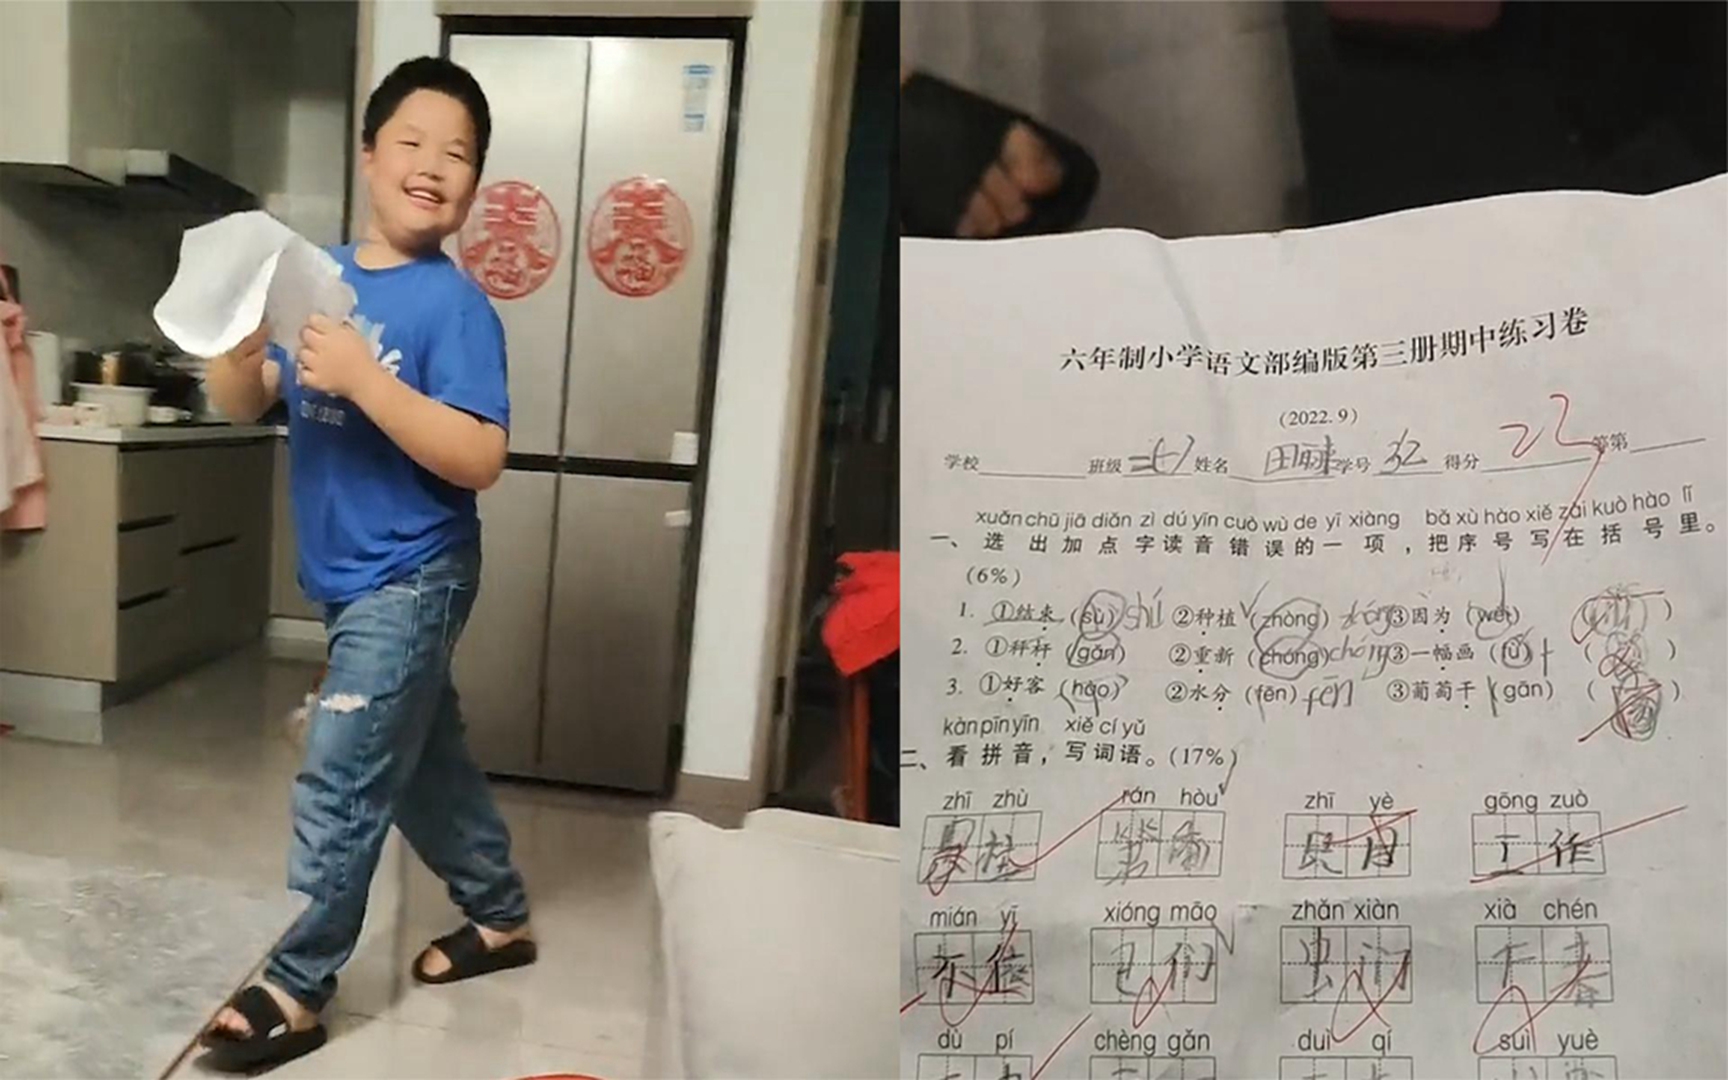 春
春
六年制小学语文部编版第三册期中练习卷
(2022.9)
学校 班级 姓名 学号 32 得分 23 等第
xuǎn chū jiā diǎn zì dú yīn cuò wù de yī xiàng bǎ xù hào xiě zài kuò hào lǐ
一、选出加点字读音错误的一项，把序号写在括号里。
(6%)
1. ①结束(sù) shù ②种植(zhòng) zhóng ③因为(wèi) ( )
2. ①秤杆(gǎn) ②重新(chóng) chóng ③一幅画(fú) ( )
3. ①好客(hào) ②水分(fēn) fēn ③葡萄干(gān) ( )
kàn pīn yīn xiě cí yǔ
二、看拼音，写词语。(17%)
zhī zhù rán hòu zhī yè gōng zuò
柱 工作
mián yī xióng māo zhǎn xiàn xià chén
们 下
dù pí chèng gǎn duì qí suì yuè